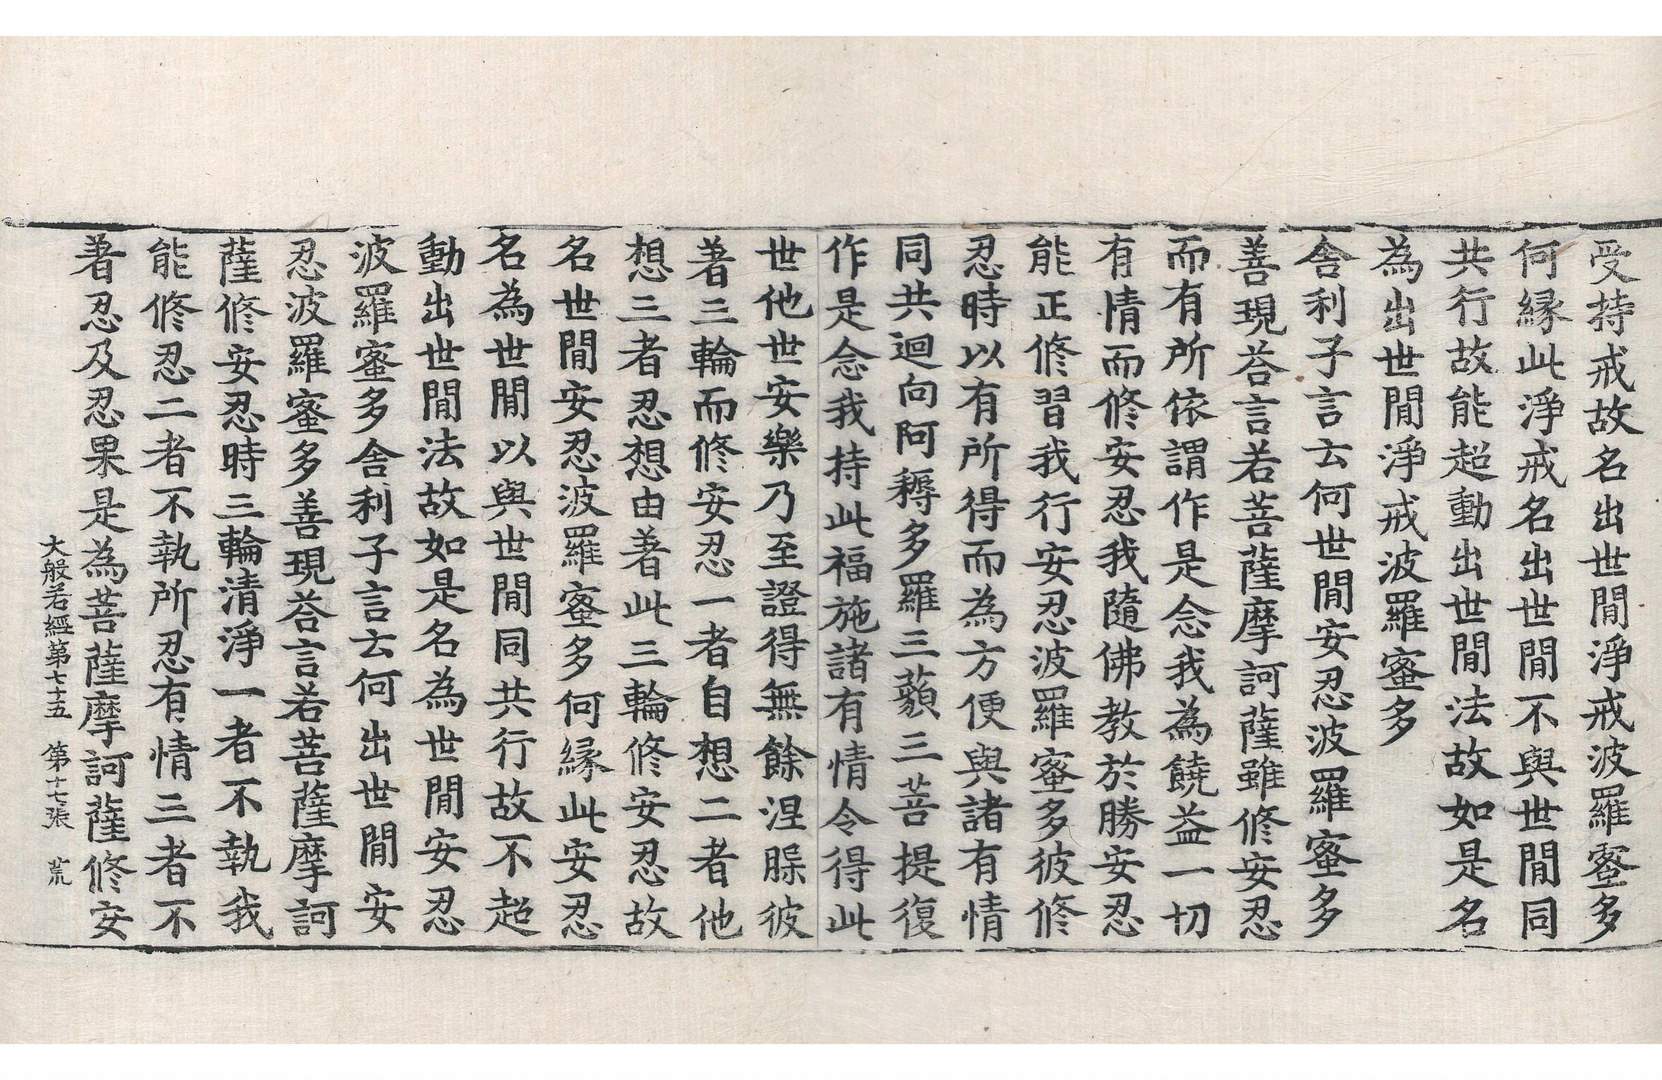 受持戒故名出世間淨戒波羅蜜多
何縁此淨戒名出世間不與世間同
共行故能超動出世間法故如是名
為出世間淨戒波羅蜜多
舍利子言云何世間安忍波羅蜜多
善現荅言若菩薩摩訶薩雖修安忍
而有所依謂作是念我為饒益一切
有情而修安忍我隨佛教於勝安忍
能正修習我行安忍波羅蜜多彼修
忍時以有所得而為方便與諸有情
同共迴向阿耨多羅三藐三菩提復
作是念我持此福施諸有情令得此
世他世安樂乃至證得無餘涅槃彼
著三輪而修安忍一者自想二者他
想三者忍想由著此三輪修安忍故
名世間安忍波羅蜜多何縁此安忍
名為世間以與世間同共行故不超
動出世間法故如是名為世間安忍
波羅蜜多舍利子言云何出世間安
忍波羅蜜多善現荅言若菩薩摩訶
薩修安忍時三輪清淨一者不執我
能修忍二者不執所忍有情三者不
著忍及忍果是為菩薩摩訶薩修安
大般若經第七十五 第十七張 荒